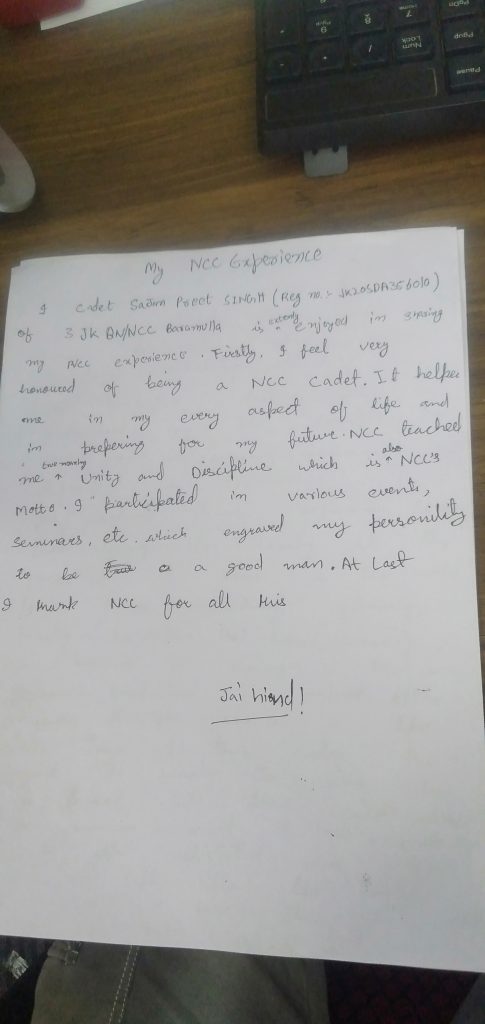 My NCC Experience
I Cadet Sabm Preet SINGH (Reg no.:- JK20SDA356010)
of 3 JK BN/NCC Baramulla is extremly enjoyed in sharing
my Ncc experience. Firstly, I feel very
honoured of being a NCC Cadet. It helped
me in my every aspect of life and
in prepering for my future. NCC teached
me Unity and Discipline which is also NCC's
Motto. I participated in various events,
Seminars, etc. which engraved my personility
to be a a good man. At Last
I thank NCC for all this
Jai hiend!
Pause
PgUp
PgDn
Num
Lock
/
7
Home
8
9
PgUp